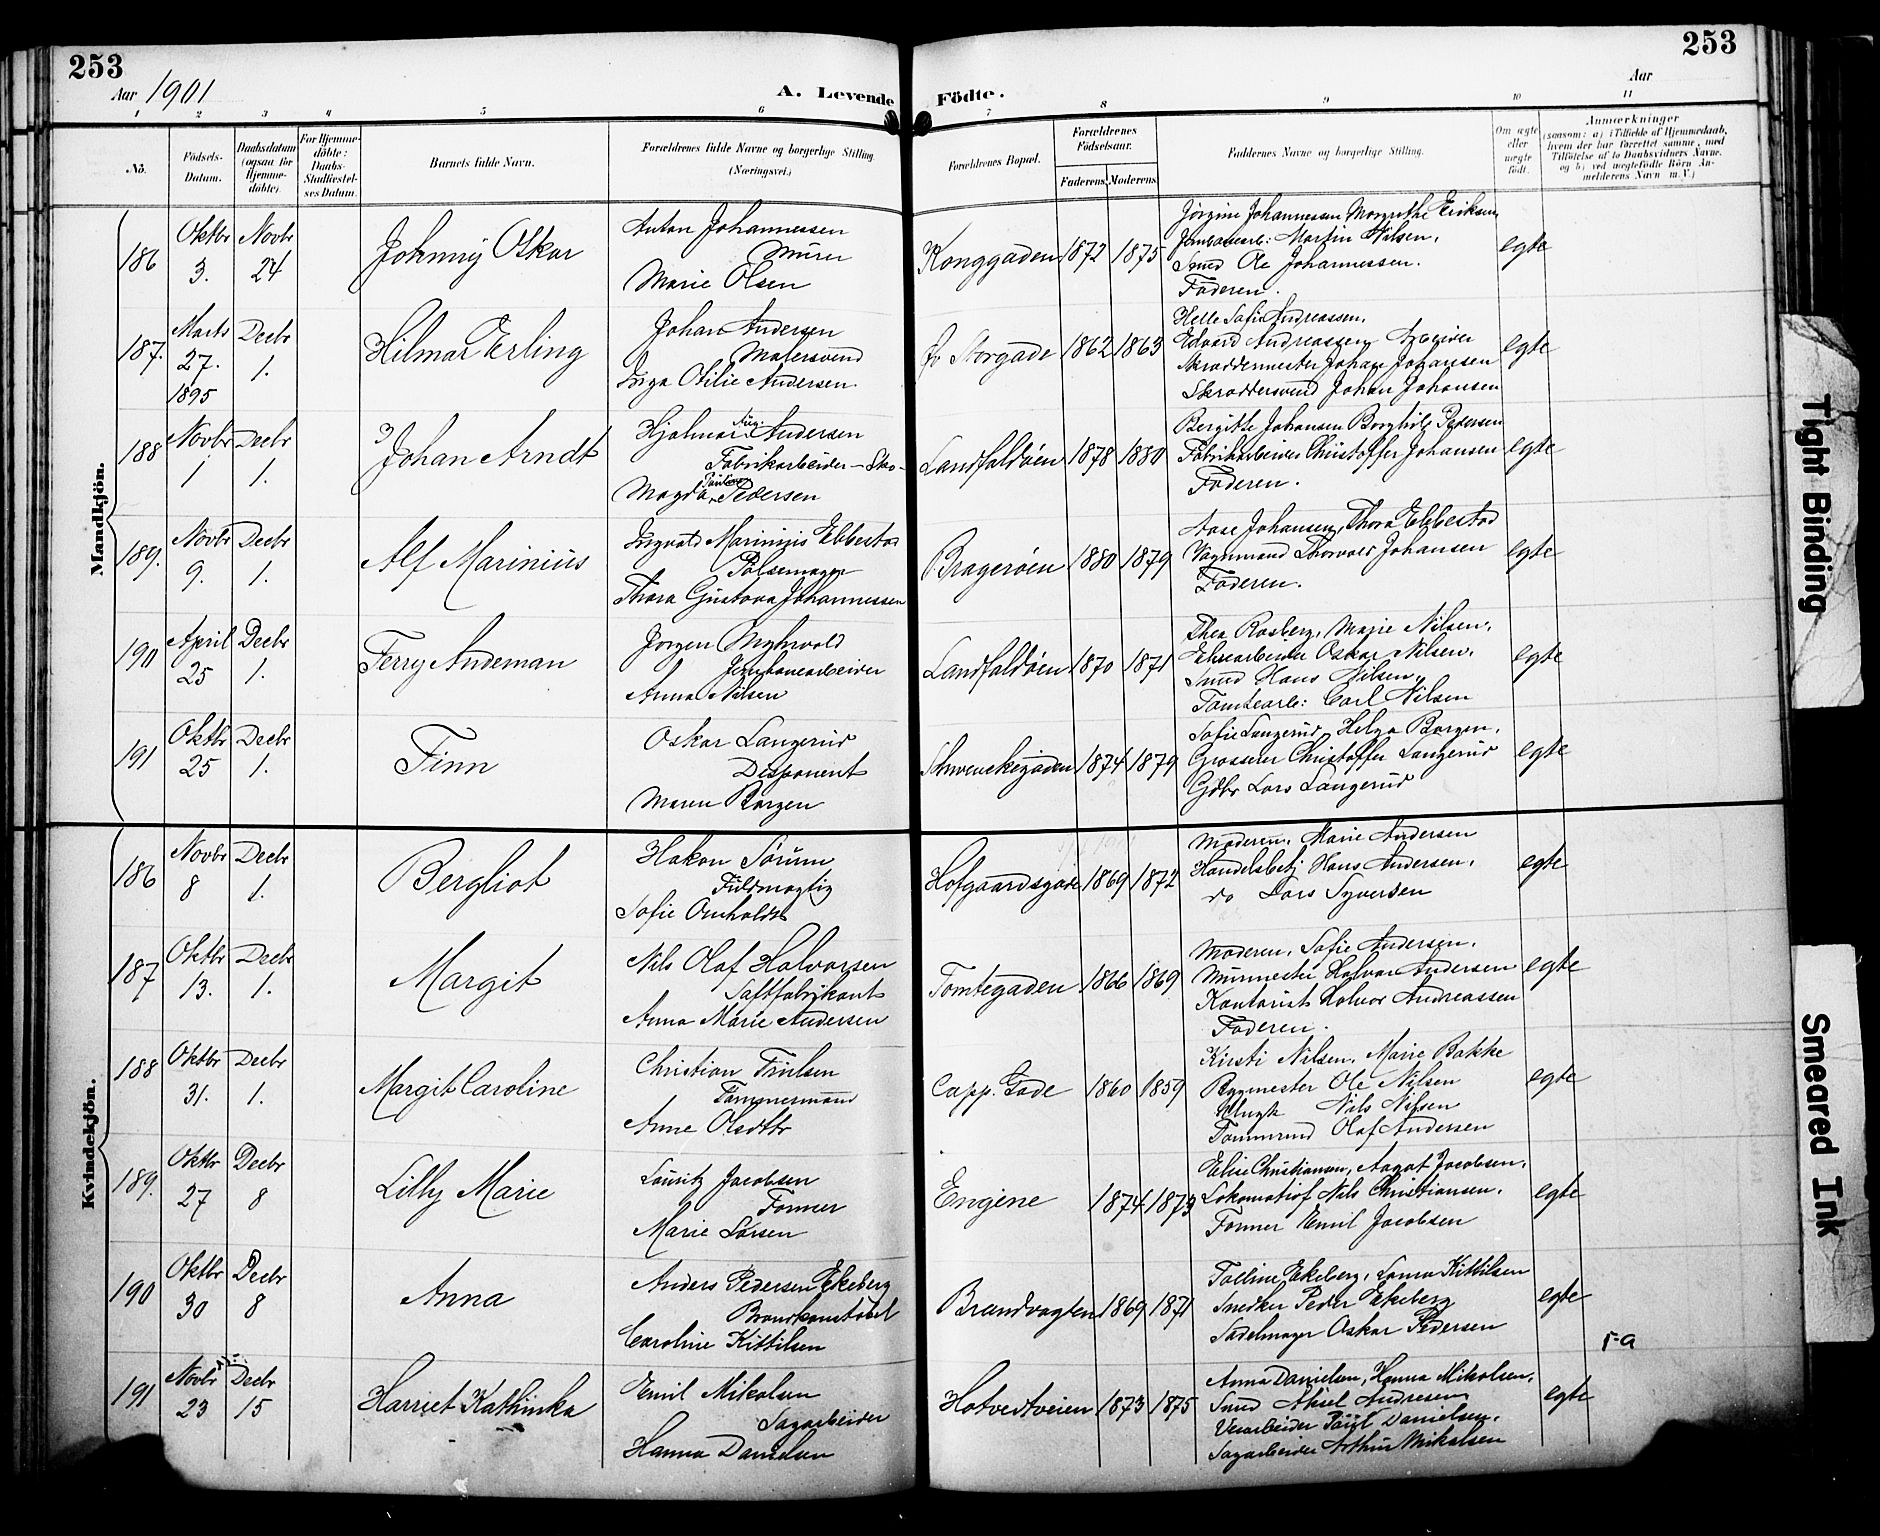 253
Aar 1901
A. Levende Födte.
253
Aar
1 2 3 4 5 6 7 8 9 10 11
No.
Födsels-Datum.
Daabsdatum (ogsaa for Hjemme-döbte).
For Hjemme-döbte: Daabs-Stadfæstel-ses Datum.
Barnets fulde Navn.
Forældrenes fulde Navne og borgerlige Stilling (Næringsvei.)
Forældrenes Bopæl.
Forældrenes Födselsaar.
Faderens. Moderens.
Faddernes Navne og borgerlige Stilling.
Om ægte eller uægte födt.
Anmærkninger
(saasom: a) i Tilfælde af Hjemmedaab, hvem der har forrettet samme, med Tilföielse af to Daabsvidners Navne. og b) ved uægtefödte Börn An-melderens Navn m. V.)
Mandkjön.
186 Oktbr 3. Novbr 24 Johnny Oskar
Anton Johannessen
Murer
Marie Olsen
Konggaden 1872 1875
Jörgine Johannessen Margrethe Eriksen
Jernbanearb: Martin Nilsen.
Smed Ole Johannessen.
Faderen.
egte
187. Marts 27. 1895 Decbr 1. Hilmar Erling
Johan Andersen
Malersvend
Inga Otilie Andersen
Öv Storgade 1862 1863
Helle Sofie Andreassen.
Edvard Andreassen
Skræddermester Johan Johansen
Skræddersvend Johan Johansen
egte
188 Novbr 1 Decbr 1. 3 Johan Arndt
Hjalmar Aug. Andersen
Fabrikarbeider - Sko-
Magda Pauline Pedersen
Landfaldöen 1878 1880
Bergitte Johansen Borghild Pedersen
Fabrikarbeider Christoffer Johansen
Faderen.
egte
189. Novbr 9. Decbr 1. Alf Marinius
Ingvald Marinius Ebbestad
Pölsemager
Thora Gustava Johannessen
Bragerøen 1880 1879
Aase Johansen, Thora Ebbestad
Vognmand Thorvald Johansen
Faderen.
egte
190 April 25 Decbr 1. Ferry Andeman
Jörgen Myhrvold
Jernbanearbeider
Anna Nilsen
Landfaldöen 1870 1871
Thea Rosberg, Marie Nilsen.
Oskar Nilsen.
Smed Hans Nilsen.
Tomtearb: Carl Nilsen
egte
191 Oktbr 25 Decbr 1. Finn
Oskar Langerud
Disponent
Maren Borgen
Schwenckegaden 1874 1879
Sofie Langerud, Helga Borgen.
Grosserer Christoffer Langerud
Gdbr Lars Langerud
egte
Kvindekjön.
186 Novbr 8 Decbr 1. Bergliot
Hakon Sörum
Fuldmægtig
Sofie Omholdt
Hofgaardsgade 1869 1872
Moderen, Marie Andersen
Handelsbetj Hans Andersen.
do Lars Syversen
egte
187 Oktbr 13. Decbr 1. Margit
Nils Olaf Halvorsen
Saftfabrikant
Anna Marie Andersen
Tomtegaden 1866 1869
Moderen, Sofie Andersen.
Murmester Halvor Andersen
Kontorist Halvor Andreassen
Faderen.
egte
188 Oktbr 31. Decbr 1. Margit Caroline
Christian Trulsen
Tömmermand
Anne Olsdtr
Capp. Gade 1860 1859
Kirsti Nilsen, Marie Bakke
Bygmester Ole Nilsen
Ungk Nils Nilsen
Tömmermd Olaf Andersen
egte
189. Oktbr 27 Decbr 8 Lilly Marie
Lauritz Jacobsen
Former
Marie Larsen
Engene 1874 1873
Elise Christiansen, Aagot Jacobsen.
Lokomotivf Nils Christiansen.
Former Emil Jacobsen
egte
190 Oktbr 30 Decbr 8 Anna
Anders Pedersen Ekeberg
Brandkonstabel
Caroline Kittilsen
Brandvagten 1869 1871
Talline Ekeberg, Laura Kittilsen
Snedker Peder Ekeberg
Sadelmager Oskar Pedersen
egte
191 Novbr 23 Decbr 15 Harriet Kathinka
Emil Mikalsen
Sagarbeider
Hanna Danielsen
Hotvedtveien 1873 1875
Anna Danielsen, Hanna Mikalsen,
Smed Aksel Andresen
Paul Danielsen.
Sagarbeider Arthur Mikalsen
egte
Tight Binding
Smeared Ink